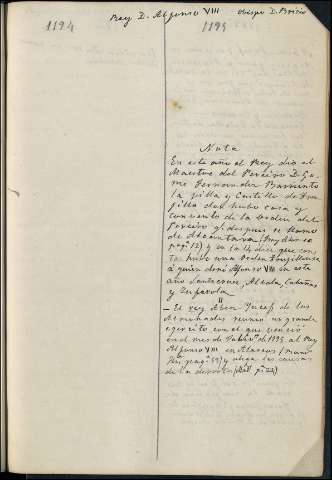 Rey D. Alfonso VIII Obispo D. Bricio
1194 1195
Nota
En este año el Rey dio al
Maestre del Pereiro D. Go-
me Fernandez Barriento
la villa y Castillo de Tru-
jillo don hubo casa y
convento de la Orden del
Pereiro q.e despues se llamo
de Alcantara
pag.a 12) y en la que cons
ta hubo una Orden Trujillense
á quien donó Alfonso VIII en este
año Santacruz, Albala, Cabañas
y Zuferola
— El rey Aben Jucef de los
Almohades reunió un grande
ejercito con el que venció
en el mes de 1195 al Rey
Alfonso VIII en Alarcos
pag.a 59) y otras las causas
de la derrota pag.a 22)